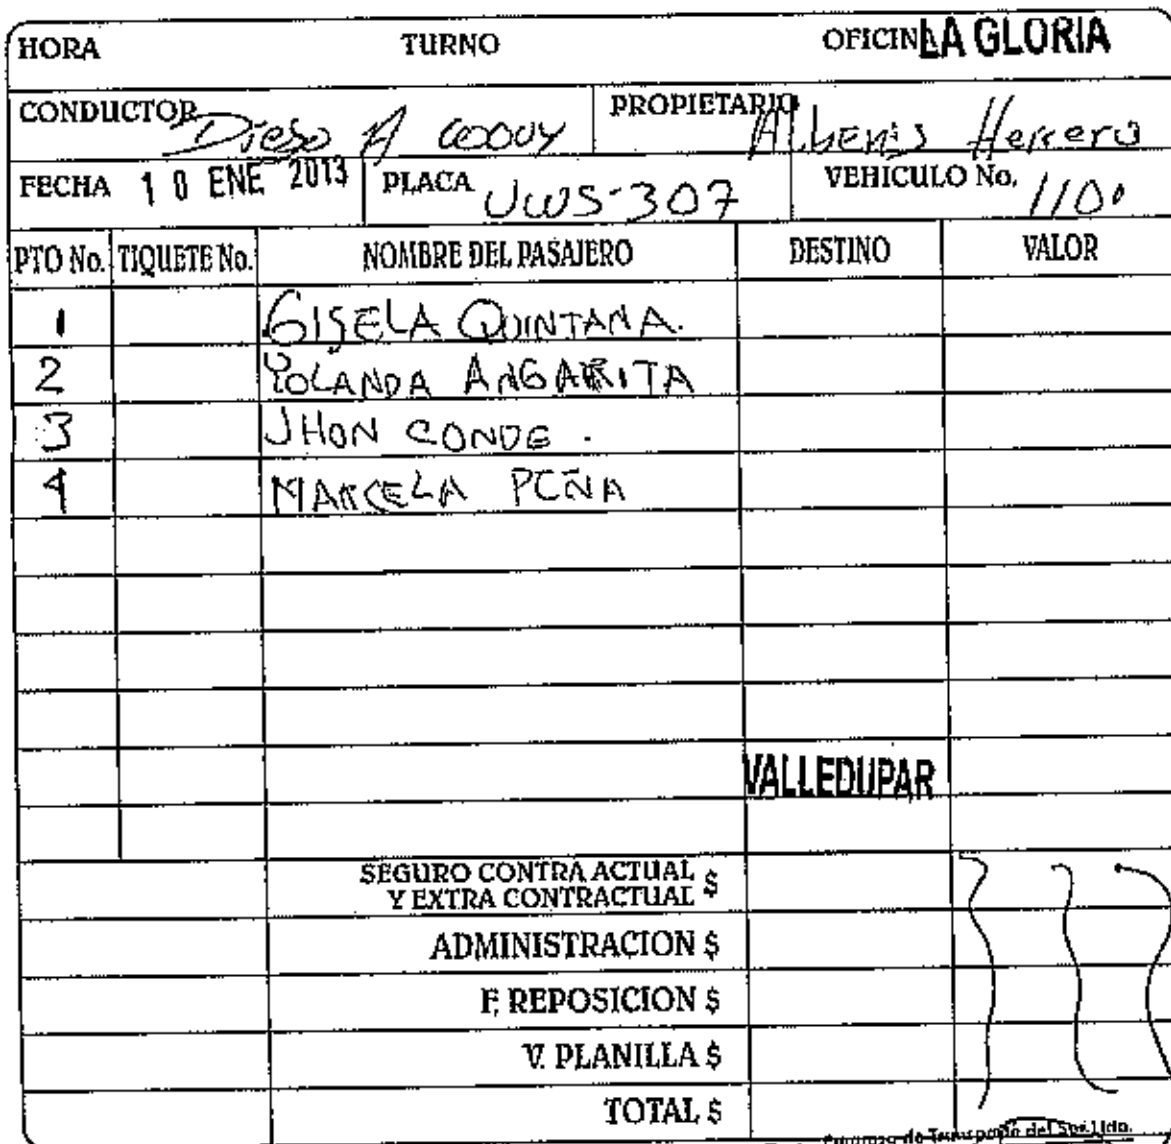 HORA TURNO OFICINA LA GLORIA
CONDUCTOR Diego A PROPIETARIO Albenis Herrera
FECHA 10 ENE 2013 PLACA UWS-307 VEHICULO No. 1100
PTO No. TIQUETE No. NOMBRE DEL PASAJERO DESTINO VALOR
1 GISELA QUINTANA.
2 YOLANDA ANGARITA
3 JHON CONDE.
4 MARCELA PEÑA
VALLEDUPAR
SEGURO CONTRA ACTUAL
Y EXTRA CONTRACTUAL $
ADMINISTRACION $
F. REPOSICION $
V. PLANILLA $
TOTAL $
de Transporte del